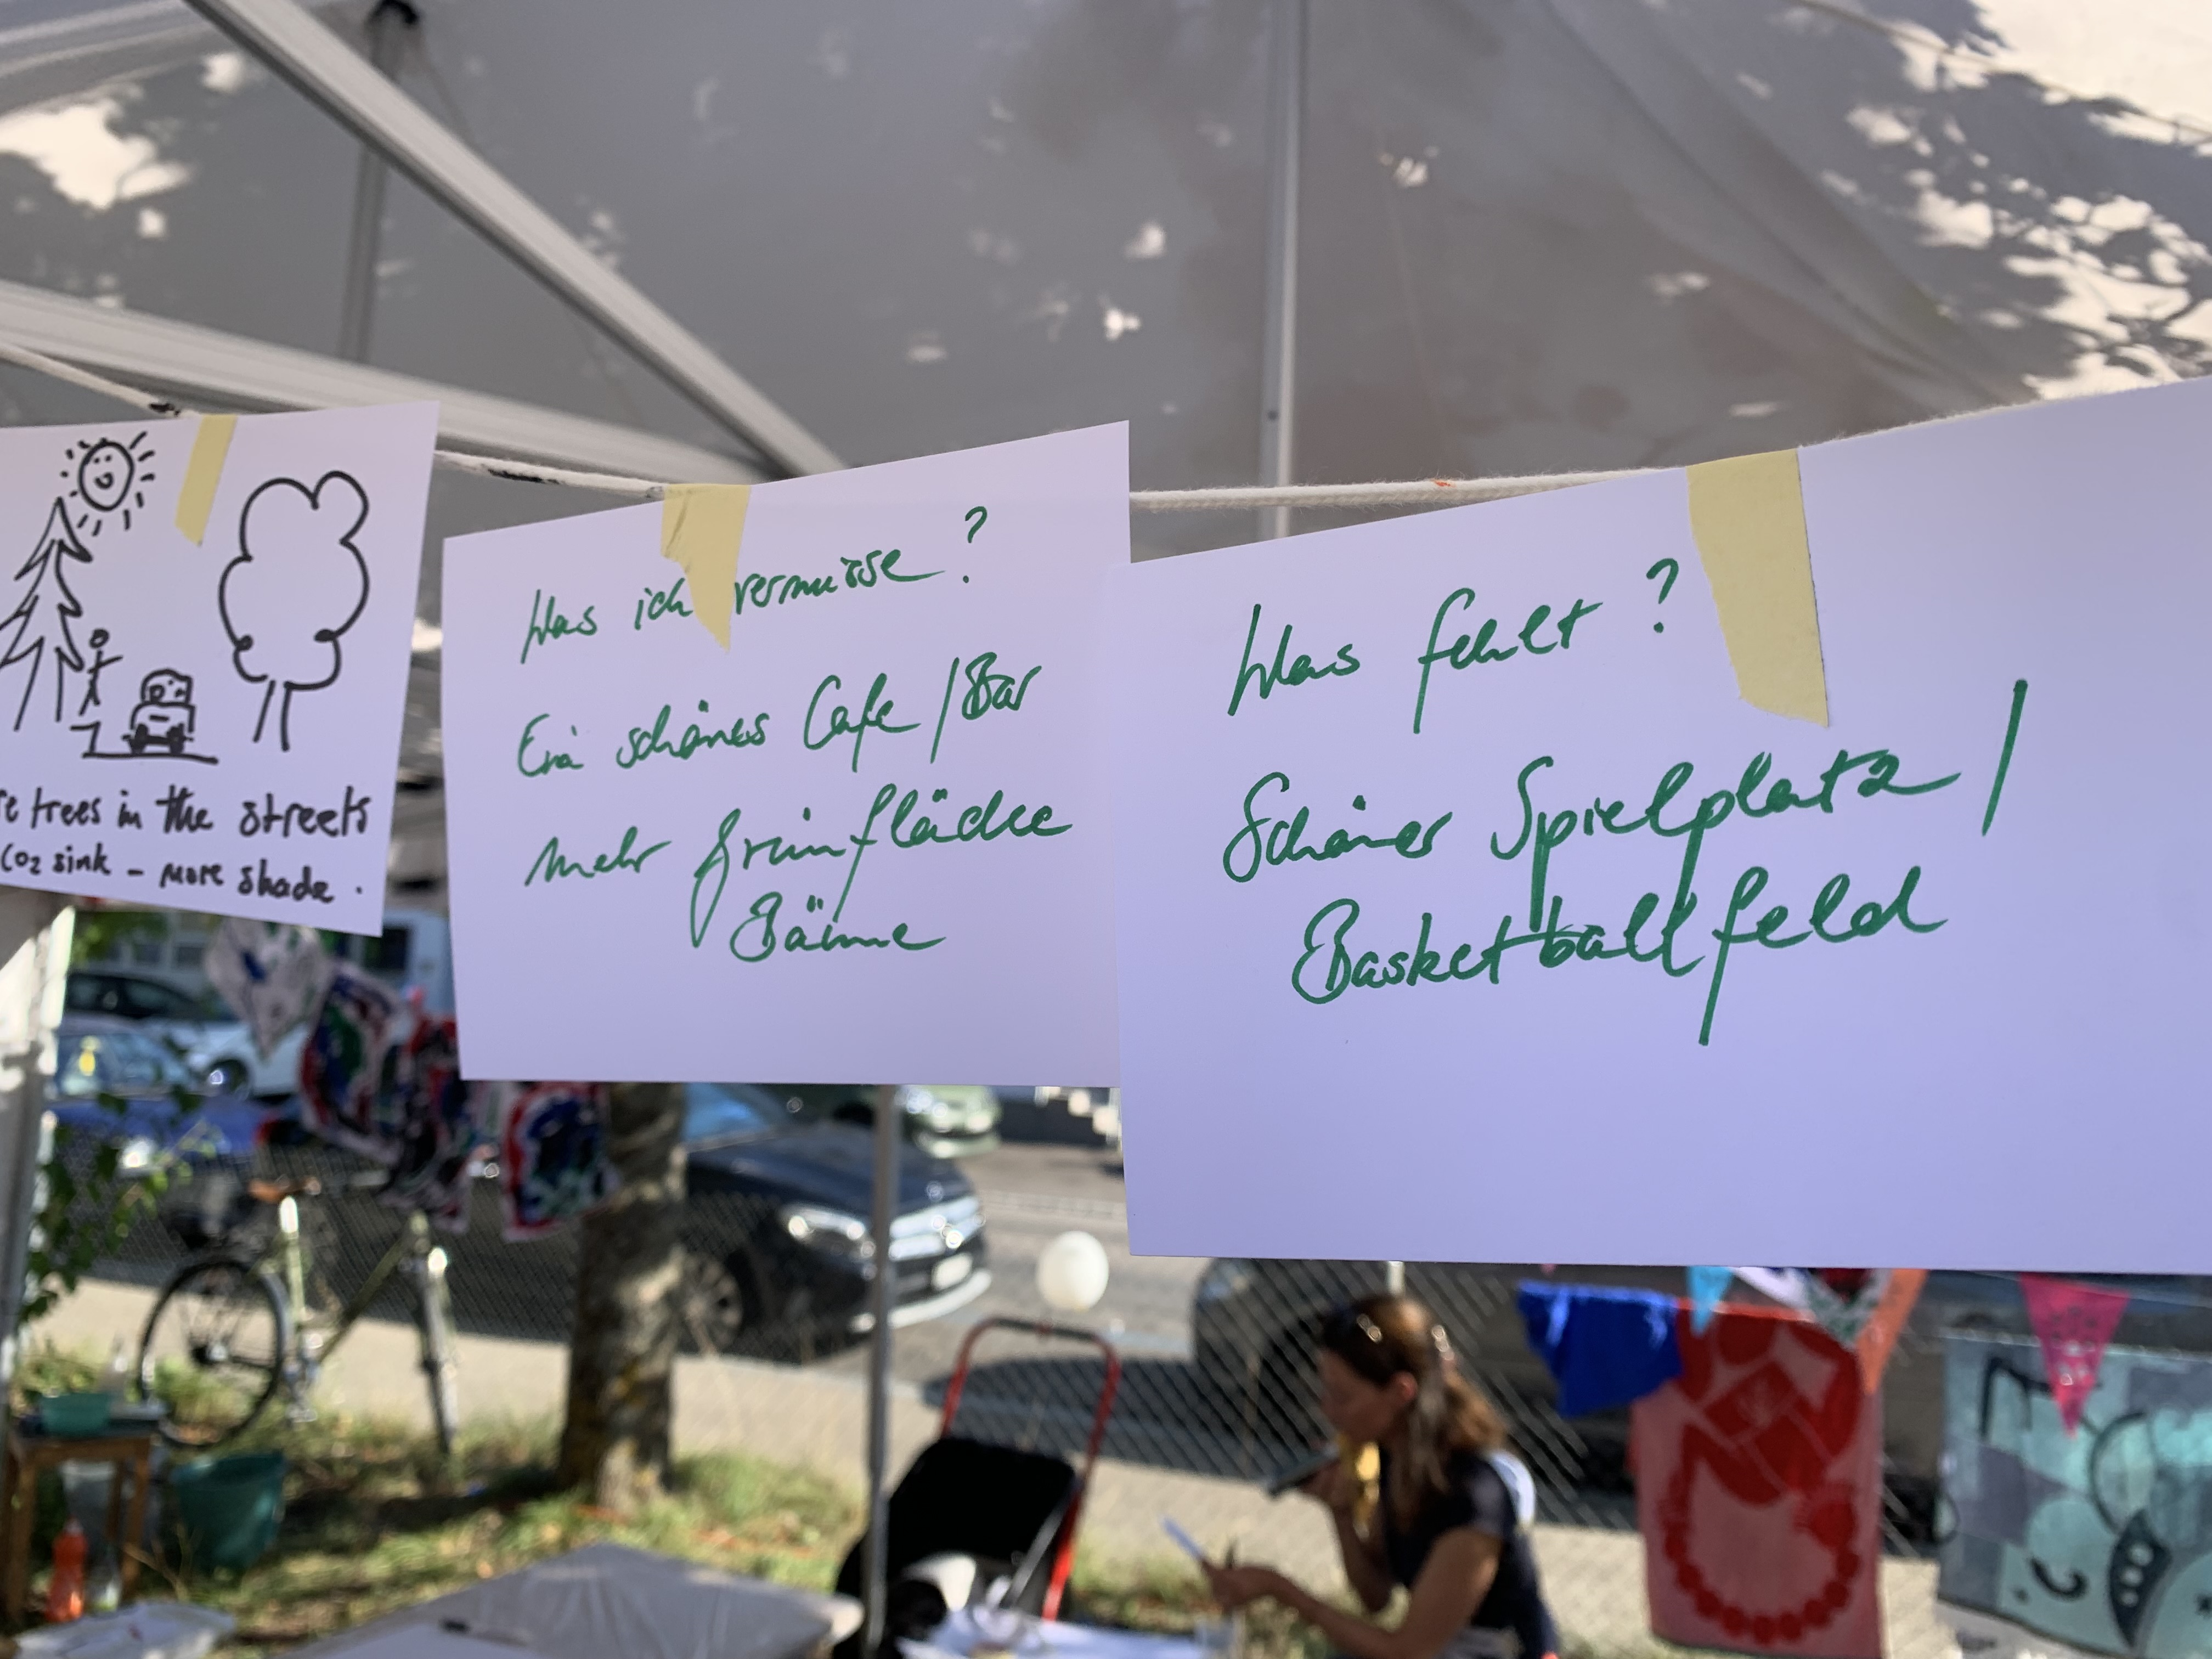 re trees in the streets
CO2 sink – more shade.
Was ich vermisse?
Ein schönes Cafe / Bar
mehr Grünfläche
Bäume
Was fehlt?
Schöner Spielplatz /
Basketballfeld